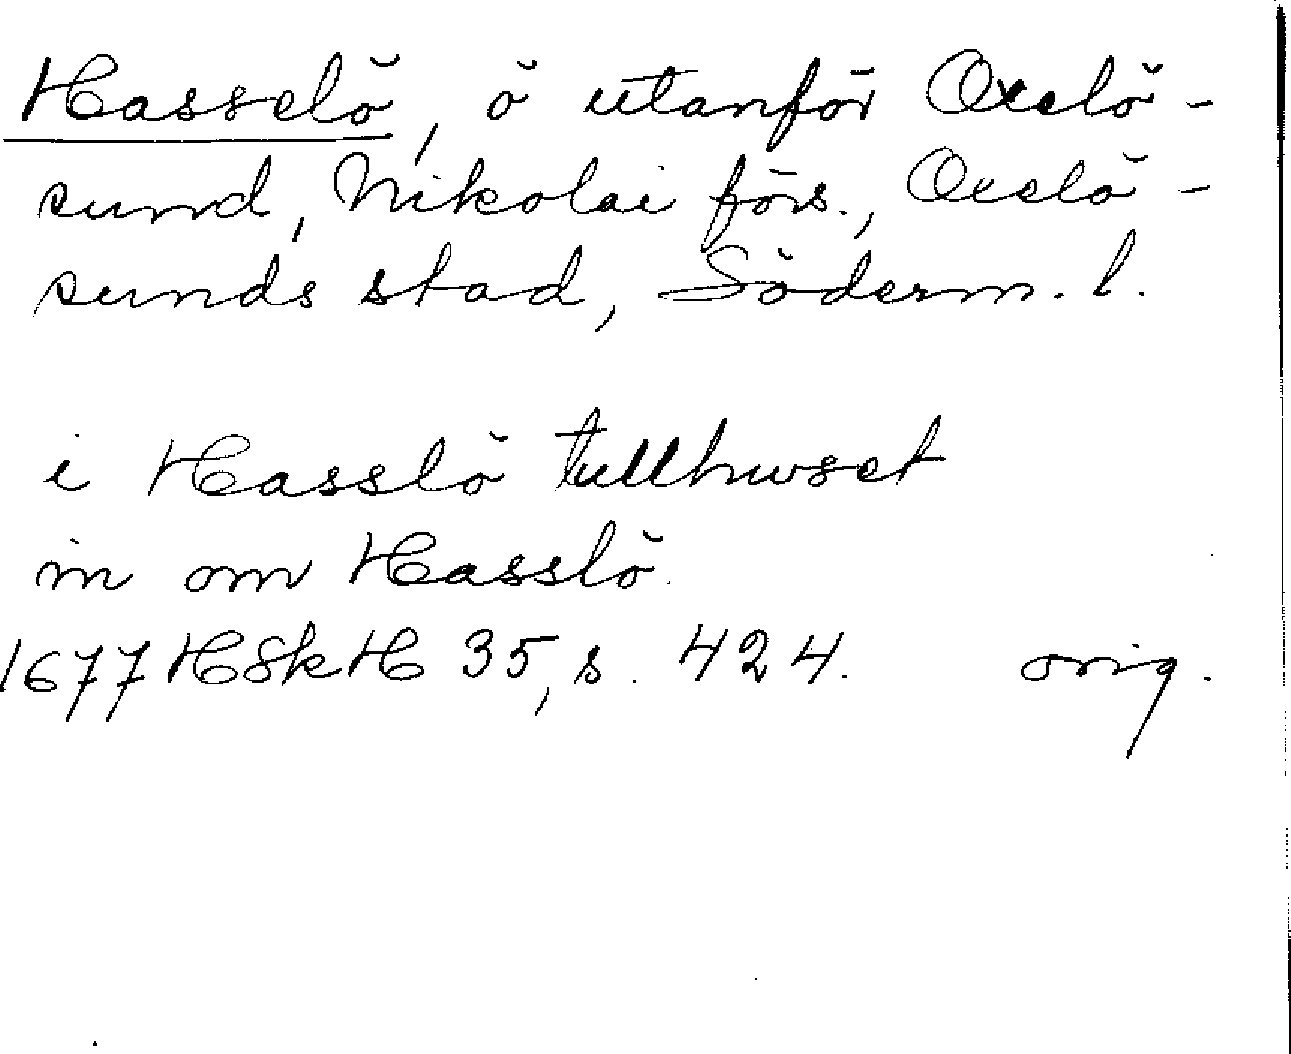 Hasselö, ö utanför Oxelö-
sund, Nikolai förs., Oxelö-
sunds stad, Söderm. l.
i Hasslö tullhuset
in om Hasslö
1677 HSkH 35, s. 424. orig.